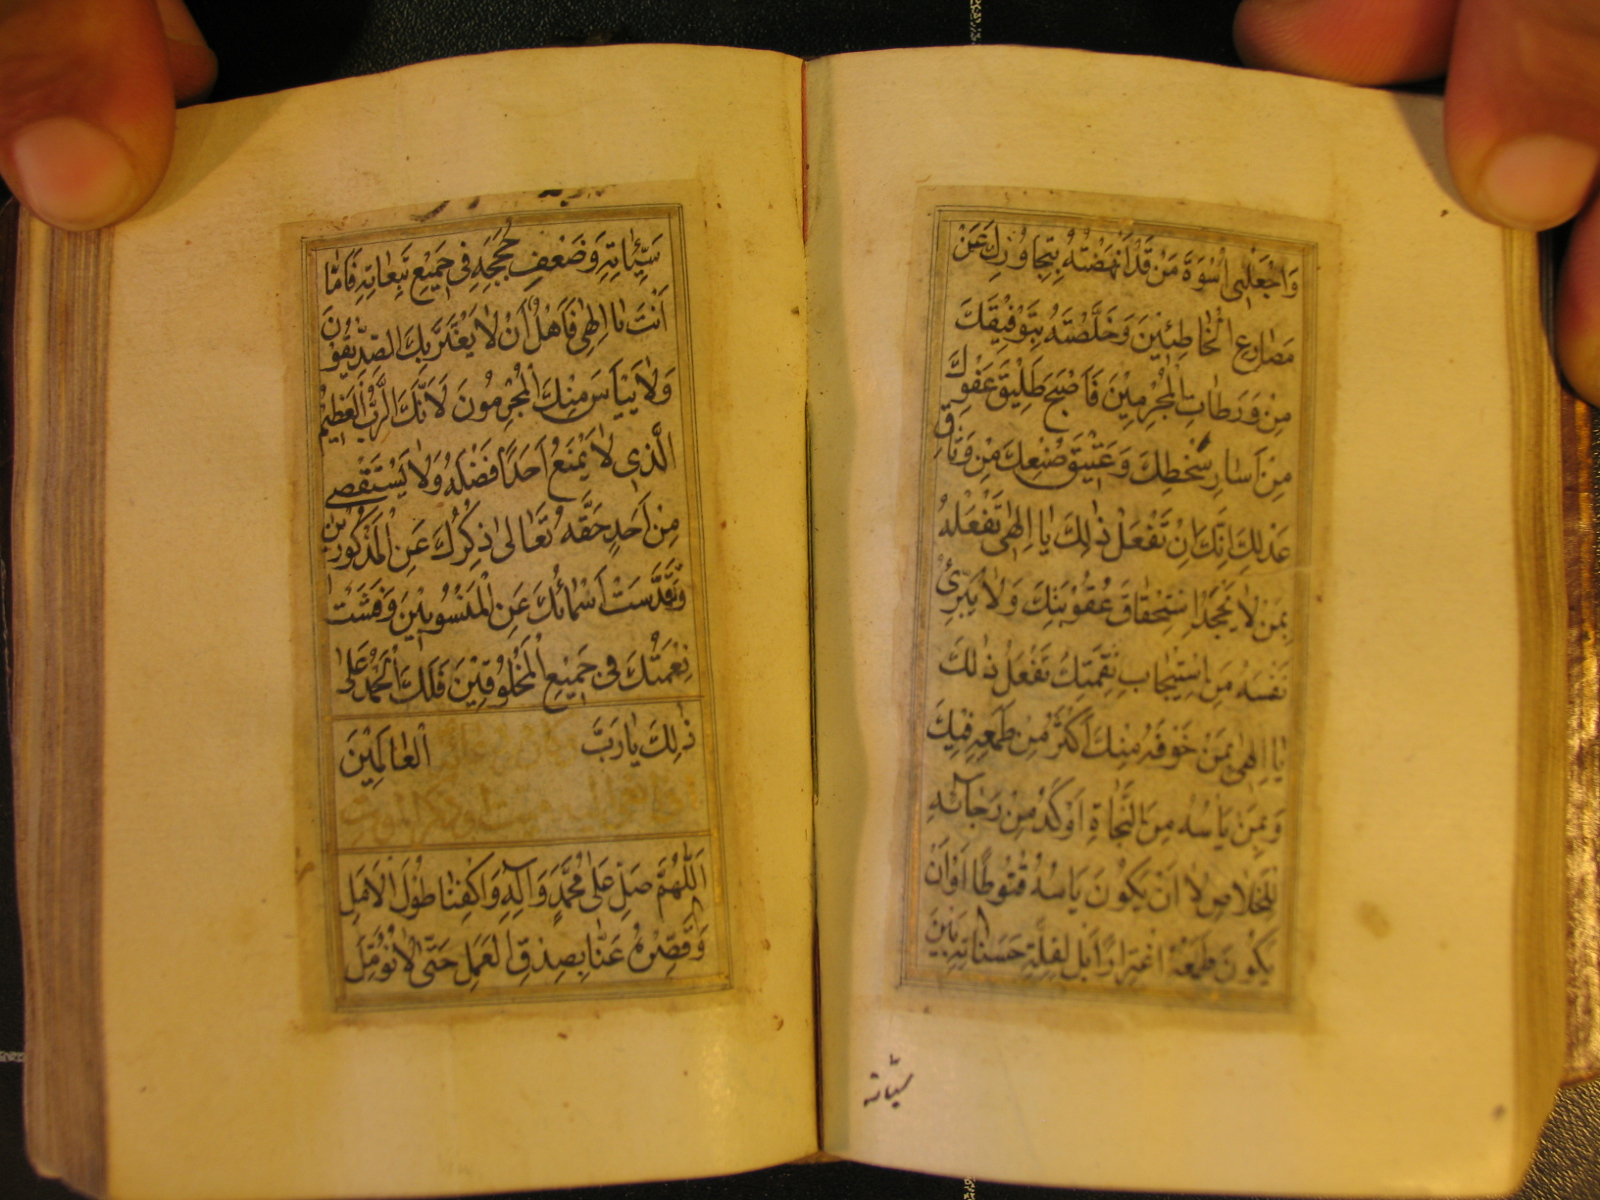 وَاجْعَلْنِی اُسْوَةَ مَنْ قَدْ اَنْهَضْتَهُ بِتَجاوُزِكَ عَنْ
مَصارِعِ الْخاطِئِینَ وَخَلَّصْتَهُ بِتَوْفِیقِكَ
مِنْ وَرَطاتِ الْمُجْرِمِینَ فَاَصْبَحَ طَلِیقَ عَفْوِكَ
مِنْ اَسارِ سُخْطِكَ وَعَتِیقَ صُنْعِكَ مِنْ وَثاقِ
عَدْلِكَ اِنَّكَ اِنْ تَفْعَلْ ذٰلِكَ یا اِلٰهی تَفْعَلْهُ
بِمَنْ لا یَجْحَدُ اسْتِحْقاقَ عُقُوبَتِكَ وَلا یُبَرِّئُ
نَفْسَهُ مِنِ اسْتِیجابِ نِقْمَتِكَ تَفْعَلُ ذٰلِكَ
یا اِلٰهی بِمَنْ خَوْفُهُ مِنْكَ اَكْثَرُ مِنْ طَمَعِهِ فِیكَ
وَبِمَنْ یَاْسُهُ مِنَ النَّجاةِ اَوْكَدُ مِنْ رَجائِهِ
لِلْخَلاصِ لا اَنْ یَكُونَ یَاْسُهُ قُنُوطًا اَوْ اَنْ
یَكُونَ طَمَعُهُ اغْتِرارًا بَلْ لِقِلَّةِ حَسَناتِهِ بَیْنَ
سیّئاته
سَیِّئاتِهِ وَضَعْفِ حُجَجِهِ فِی جَمِیعِ تَبِعاتِهِ فَاَمّا
اَنْتَ یا اِلٰهِی فَاَهْلٌ اَنْ لا یَغْتَرَّ بِكَ الصِّدِّیقُونَ
وَلا یَیْاَسَ مِنْكَ الْمُجْرِمُونَ لِاَنَّكَ الرَّبُّ الْعَظِیمُ
الَّذِی لا یَمْنَعُ اَحَدًا فَضْلَهُ وَلا یَسْتَقْصِی
مِنْ اَحَدٍ حَقَّهُ تَعالٰی ذِكْرُكَ عَنِ الْمَذْكُورِینَ
وَتَقَدَّسَتْ اَسْمائُكَ عَنِ الْمَنْسُوبِینَ وَفَشَتْ
نِعْمَتُكَ فِی جَمِیعِ الْمَخْلُوقِینَ فَلَكَ الْحَمْدُ عَلٰی
ذٰلِكَ یا رَبَّ الْعالَمِینَ
اَللّٰهُمَّ صَلِّ عَلٰی مُحَمَّدٍ وَآلِهِ وَاكْفِنا طُولَ الْاَمَلِ
وَقَصِّرْهُ عَنّا بِصِدْقِ الْعَمَلِ حَتّٰی لا نُؤَمِّلَ